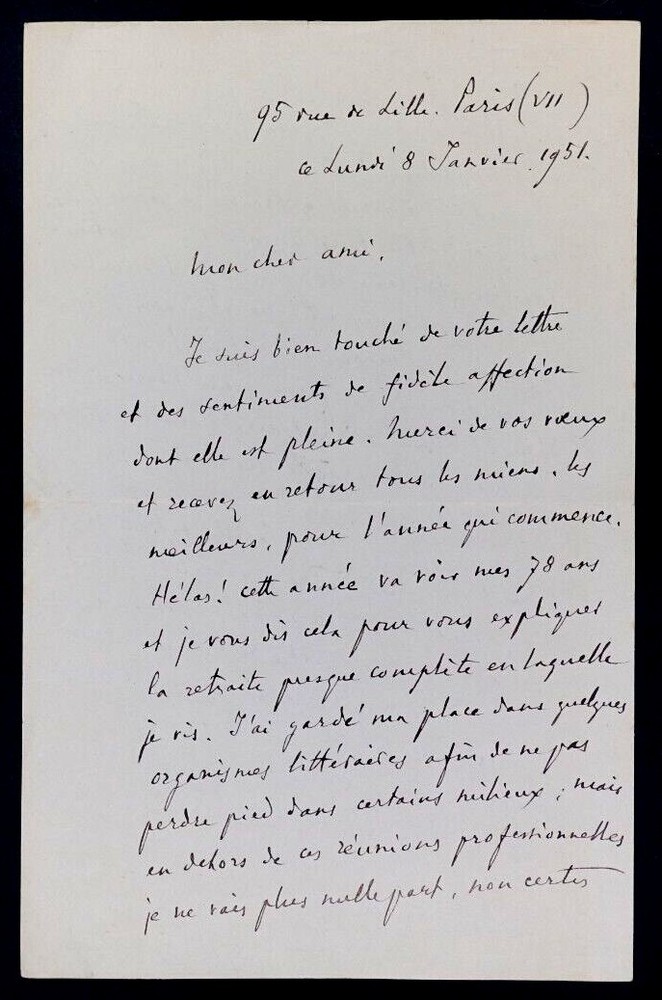 95 rue de Lille. Paris (VII)
ce Lundi 8 Janvier 1951.
Mon cher ami,
Je suis bien touché de votre lettre
et des sentiments de fidèle affection
dont elle est pleine. Merci de vos vœux
et recevez en retour tous les miens, les
meilleurs, pour l'année qui commence.
Hélas! cette année va voir mes 78 ans
et je vous dis cela pour vous expliquer
la retraite presque complète en laquelle
je vis. J'ai gardé ma place dans quelques
organismes littéraires afin de ne pas
perdre pied dans certains milieux ; mais
en dehors de ces réunions professionnelles
je ne vais plus nulle part, non certes